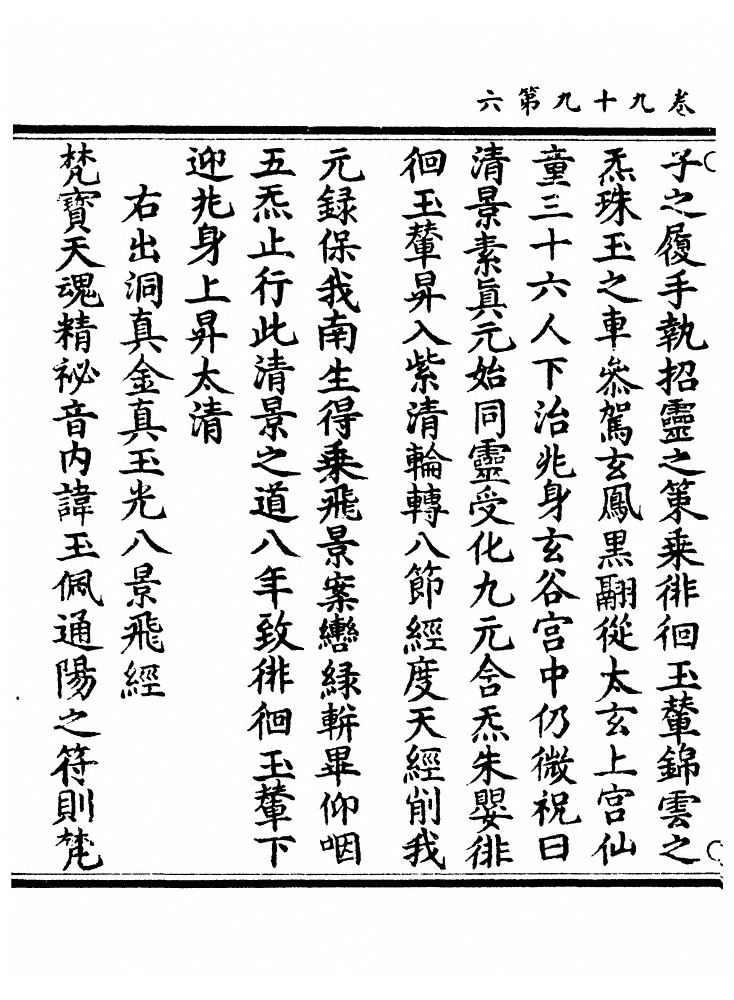 卷九十九第六
子之履手執招靈之策乘徘徊玉輦錦雲之
炁珠玉之車叅駕玄鳳黑翮從太玄上宮仙
童三十六人下治兆身玄谷宮中仍微祝曰
清景素眞元始同靈受化九元含炁朱嬰徘
徊玉輦昇入紫清輪轉八節經度天經削我
元録保我南生得乗飛景案轡緑軿畢仰咽
五炁止行此清景之道八年致徘徊玉輦下
迎兆身上昇太清
右出洞真金真玉光八景飛經
梵寶天魂精祕音内諱玉佩通陽之符則梵